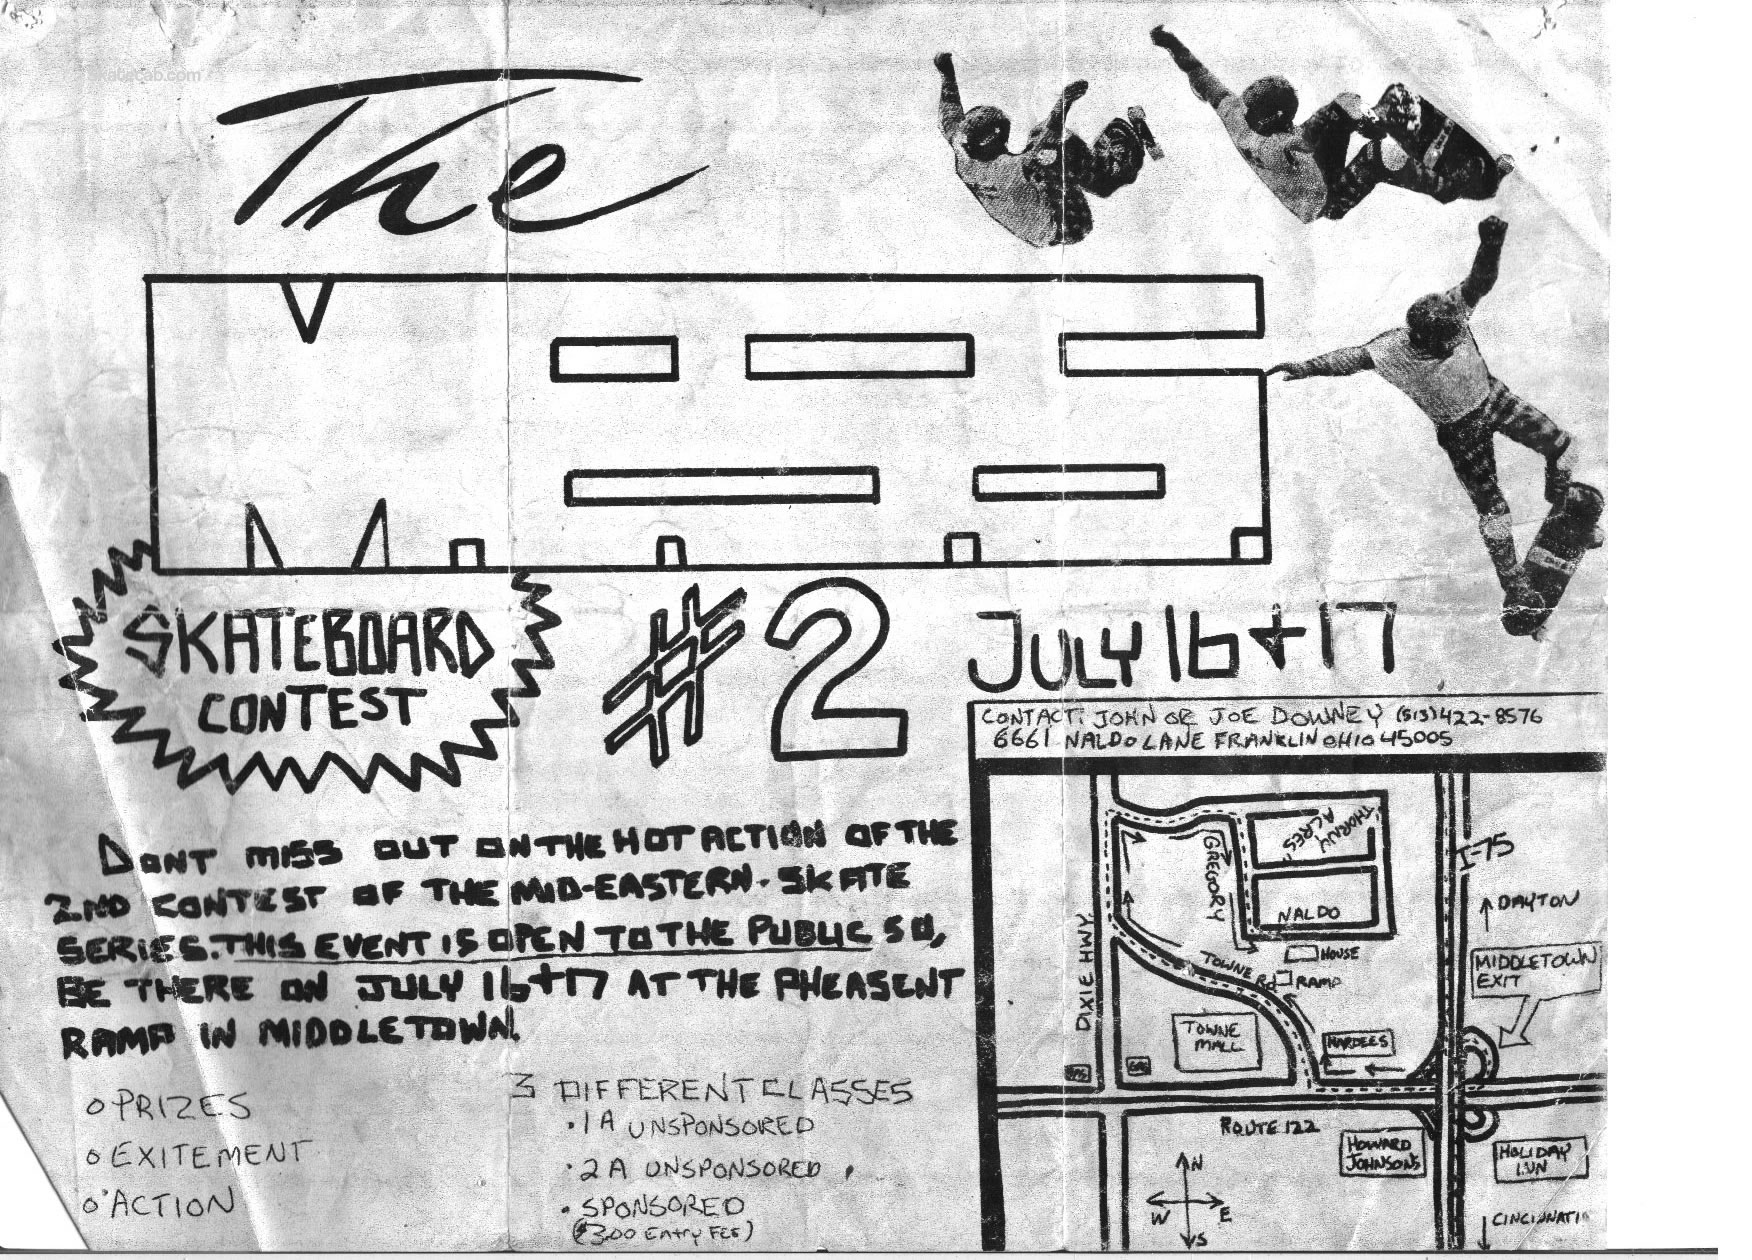 skatelab.com
The
M.E.S.S.
SKATEBOARD
CONTEST
#2
JULY 16+17
CONTACT: JOHN OR JOE DOWNEY (513)422-8576
6661 NALDO LANE FRANKLIN OHIO 45005
DONT MISS OUT ON THE HOT ACTION OF THE
2ND CONTEST OF THE MID-EASTERN-SKATE
SERIES. THIS EVENT IS OPEN TO THE PUBLIC SO,
BE THERE ON JULY 16+17 AT THE PHEASENT
RAMP IN MIDDLETOWN.
o PRIZES
o EXITEMENT
o ACTION
3 DIFFERENT CLASSES
• 1A UNSPONSORED
• 2A UNSPONSORED
• SPONSORED
($3.00 Entry Fee)
THORNY
ACRES
GREGORY
NALDO
I-75
DAYTON
HOUSE
MIDDLETOWN
EXIT
DIXIE HWY
TOWNE Rd
RAMP
TOWNE
MALL
HARDEES
ROUTE 122
HOWARD
JOHNSONS
HOLIDAY
INN
N
W E
S
CINCINNATI